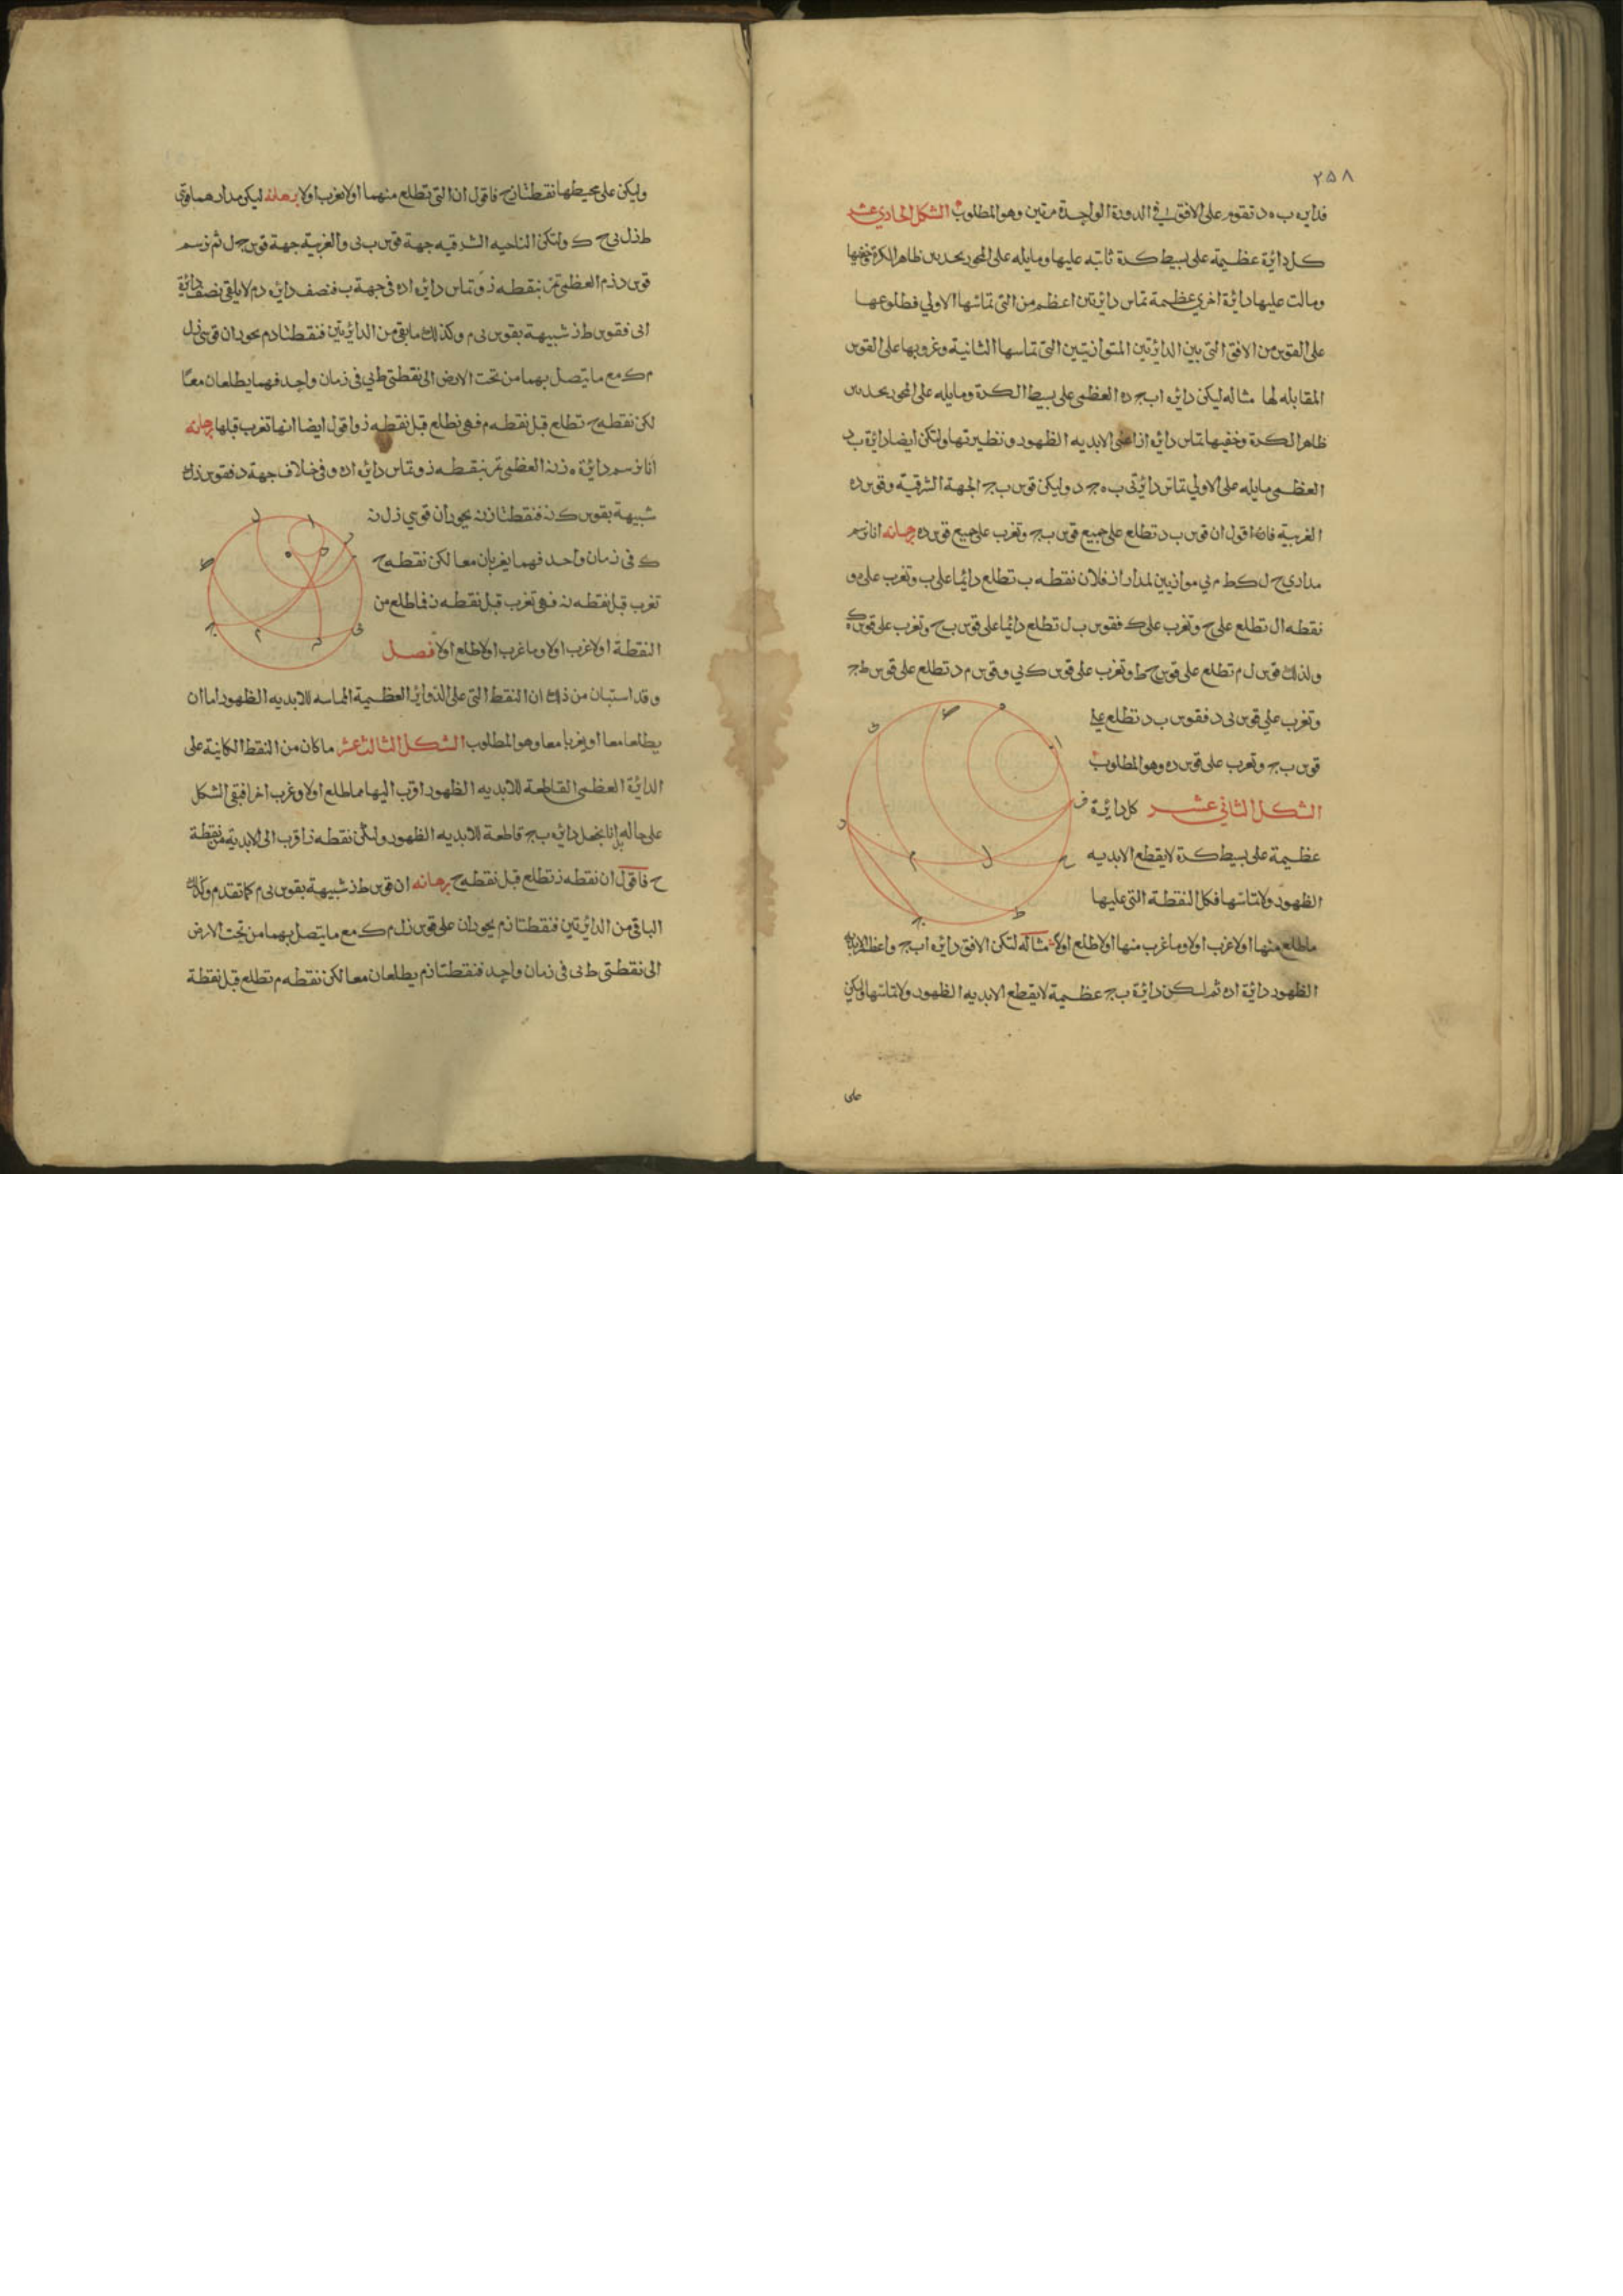 ٢٥٨
فدايره ب ه د تقوم على الافق في الدورة الواحدة مرتين وهو المطلوب الشكل الحادي عشر
كل دائرة عظيمة على بسيط كرة ثابته عليها ومايله على المحور يحد بين ظاهر الكرة وخفيها
ومالت عليها دائرة اخري عظيمة تماس دائرتين اعظم من التي تماسها الاولي فطلوعها
على القوس من الافق التي بين الدائرتين المتوازيتين التي تماسها الثانية وغروبها على القوس
المقابله لها مثاله ليكن دائره اب ج ده العظمى على بسيط الكرة ومايله على المحور يحد بين
ظاهر الكرة وخفيها تماس دائره از اعني الابديه الظهور ونظيرتها ولتكن ايضا دايرة ب د
العظمى مايله على الاولي تماس دائرتي ب ه ج د وليكن قوس ب ج الجهة الشرقية وقوس ده
الغربية فانا اقول ان قوس ب د تطلع على جميع قوس ب ج وتغرب على جميع قوس ده برهانه انا نرسم
مداري ح ل ك ط م ي موازيين لمدار از فلان نقطه ب تطلع دائما على ب وتغرب على ه و
نقطه ال تطلع على ح وتغرب على ك فقوس ب ل تطلع دائما على قوس ب ح وتغرب على قوس ك ه
ولذلك قوس ل م تطلع على قوس ح ط وتغرب على قوس ك ي وقوس م د تطلع على قوس ط ج
وتغرب على قوس ي د فقوس ب د تطلع على
قوس ب ج وتغرب على قوس ده وهو المطلوب
الشكل الثاني عشر كل دائرة
عظيمة على بسيط كرة لا يقطع الابديه
الظهور ولا تماسها فكل النقطة التي عليها
ماطلع منها اولا غرب اولا وما غرب منها اولا طلع اولا مثاله لتكن الافق دائره اب ج واعظم الابديه
الظهور دائرة اده ثم لكن دائرة ب ج عظيمة لا يقطع الابديه الظهور ولا تماسها وليكن
على
وليكن على محيطها نقطتا ز ح فاقول ان التي تطلع منهما اولا تغرب اولا برهانه ليكن مدارهما قوتي
ط ز ل ي ح ك ولتكن الناحيه الشرقيه جهة قوس ب ي والغربية جهة قوس ج ل ثم نرسم
قوس د ز م العظمى تمر بنقطه ز وتماس دائره اده في جهة ب فنصف دائره د م لا يلاقي نصف دائرة
ا ي فقوس ط ز شبيهة بقوس ي م وكذلك ما بقي من الدائرتين فنقطتا د م يحوران قوسي زل
م ك مع ما يتصل بهما من تحت الارض الى نقطتي ط ي في زمان واحد فهما يطلعان معا
لكن نقطه ح تطلع قبل نقطه م فهي تطلع قبل نقطه ز واقول ايضا انها تغرب قبلها برهانه
انا نرسم دائرة ه ز ن العظمى تمر بنقطه ز وتماس دائره اده وفي خلاف جهة د فقوس ز ل
شبيهة بقوس ك ن فنقطتا ز ن يحوران قوسي ز ل ن
ك في زمان واحد فهما يغربان معا لكن نقطه ح
تغرب قبل نقطه ن فهي تغرب قبل نقطه ز فما طلع من
النقطة اولا غرب اولا وما غرب اولا طلع اولا فصل
وقد استبان من ذلك ان النقط التي على الدوائر العظيمة المماسه للابديه الظهور اما ان
يطلعا معا او يغربا معا وهو المطلوب الشكل الثالث عشر ما كان من النقط الكاينة على
الدائرة العظمى القاطعة للابديه الظهور اقرب اليها مما طلع اولا وغرب اخرا فبقى الشكل
على حاله انا نجعل دائره ب ج قاطعة للابديه الظهور ولكن نقطه ز اقرب الى الابدية من نقطة
ح فاقول ان نقطه ز تطلع قبل نقطه ح برهانه ان قوس ط ز شبيهة بقوس ي م كما تقدم وكذلك
الباقي من الدائرتين فنقطتا ز م يحوران على قوس ز ل م ك مع ما يتصل بهما من تحت الارض
الى نقطتي ط ي في زمان واحد فنقطتا ز م يطلعان معا لكن نقطه م تطلع قبل نقطة